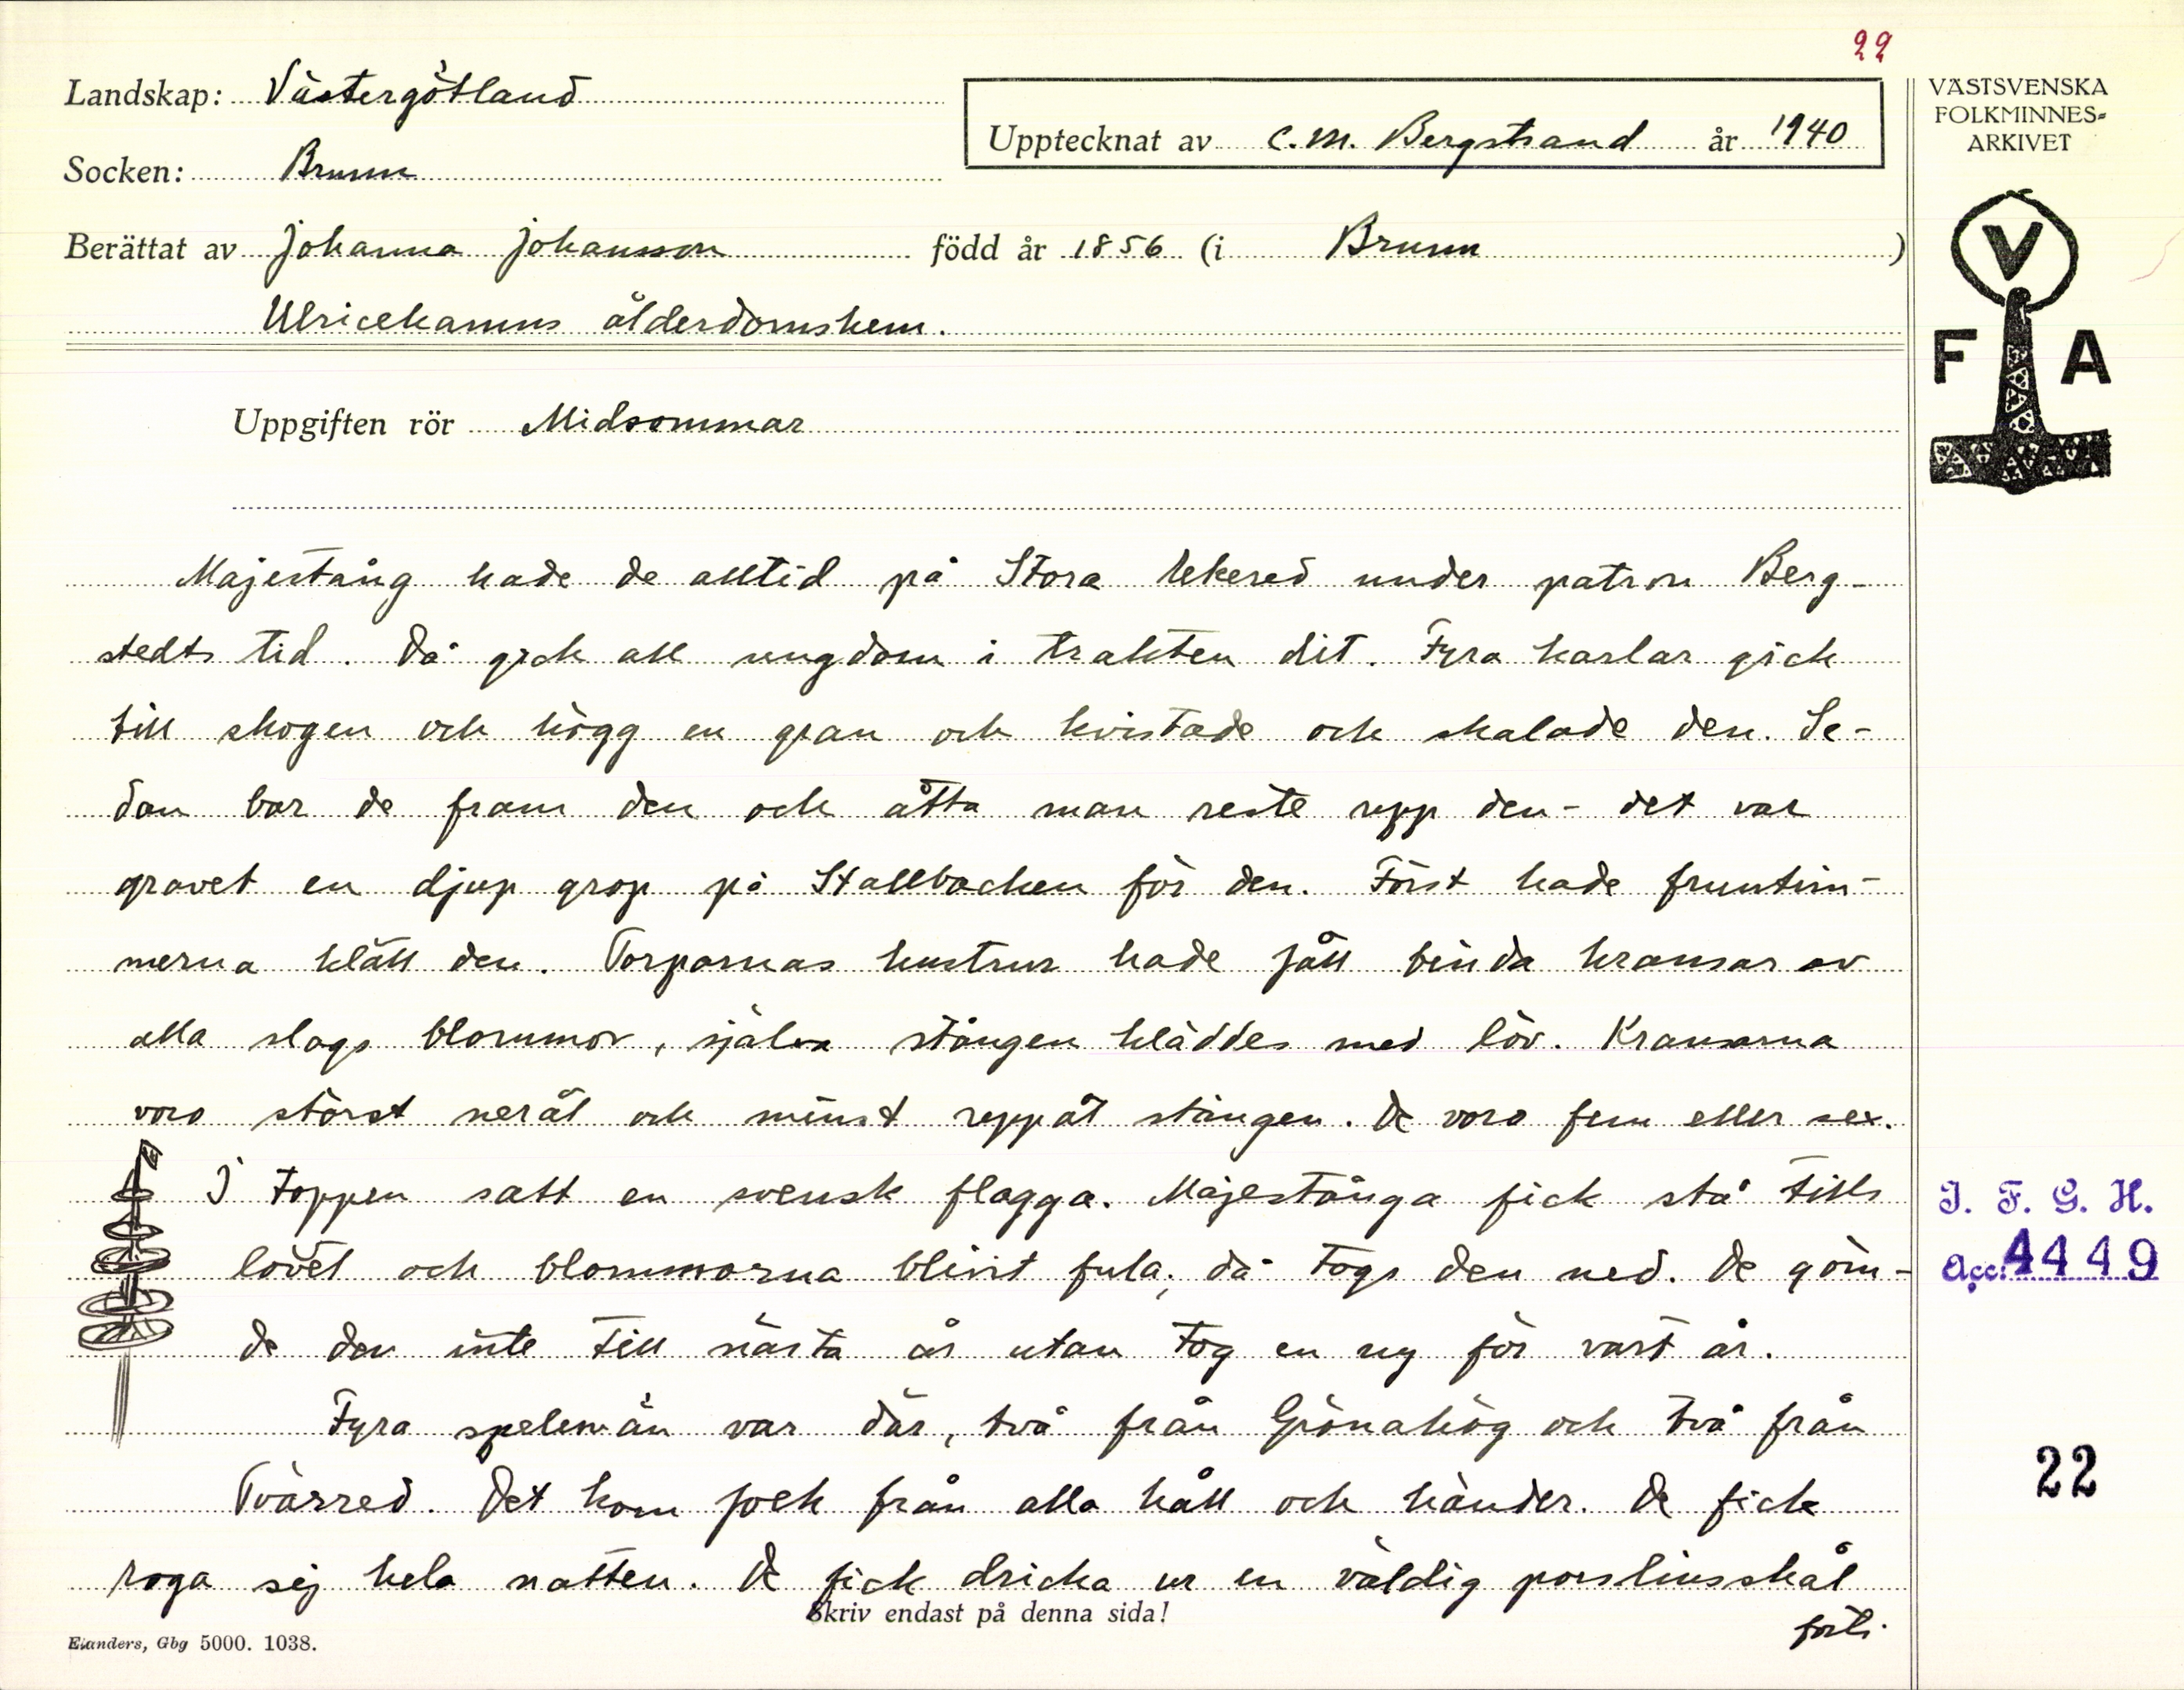 22
Landskap: Västergötland
Upptecknat av C.M. Bergstrand år 1940
Socken: Brunn
Berättat av Johanna Johansson född år 1856 (i Brunn )
Ulricehamns ålderdomshem.
Uppgiften rör Midsommar
Majestång hade de alltid på Stora Rekered under patron Berg-
stedts tid. Då gick all ungdom i trakten dit. Fyra karlar gick
till skogen och högg en gran och kvistade och skalade den. Se-
dan bar de fram den och åtta man reste upp den - det var
gravet en djup grop på Stallbacken för den. Först hade fruntim-
merna klätt den. Torparnas hustrur hade fått binda kransar av
alla slags blommor, själva stången kläddes med löv. Kransarna
voro störst neråt och minst uppåt stången. De voro fem eller sex.
I toppen satt en svensk flagga. Majestånga fick stå tills
lövet och blommorna blivit fula, då togs den ned. De göm-
de den inte till nästa år utan tog en ny för vart år.
Fyra spelemän var där, två från Grönahög och två från
Tvärred. Det kom folk från alla håll och känder. De fick
roga sej hela natten. De fick dricka ur en väldig porslinsskål
forts.
Skriv endast på denna sida!
Elanders, Gbg 5000. 1038.
VÄSTSVENSKA
FOLKMINNES-
ARKIVET
V
F A
I. F. G. H.
Acc. 4449
22